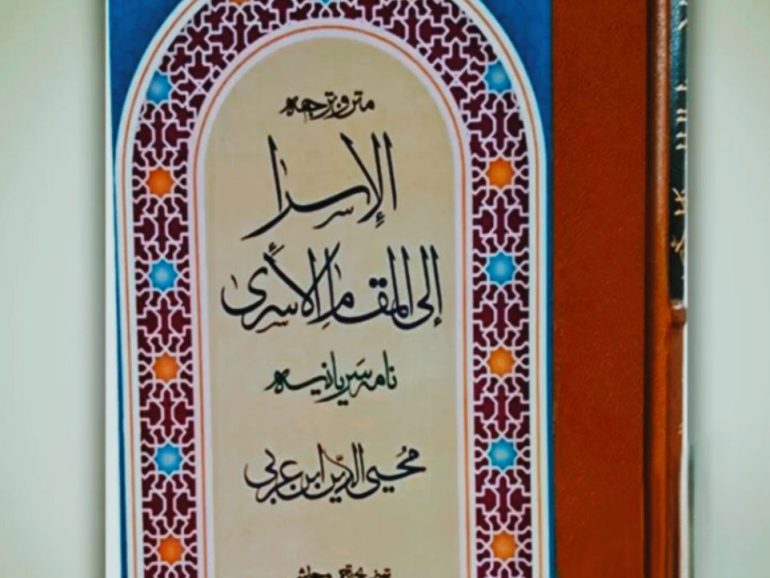 متن و ترجمه
الإسرا
إلى المقام الأسرى
نامه سریانیه
محیی الدین ابن عربی